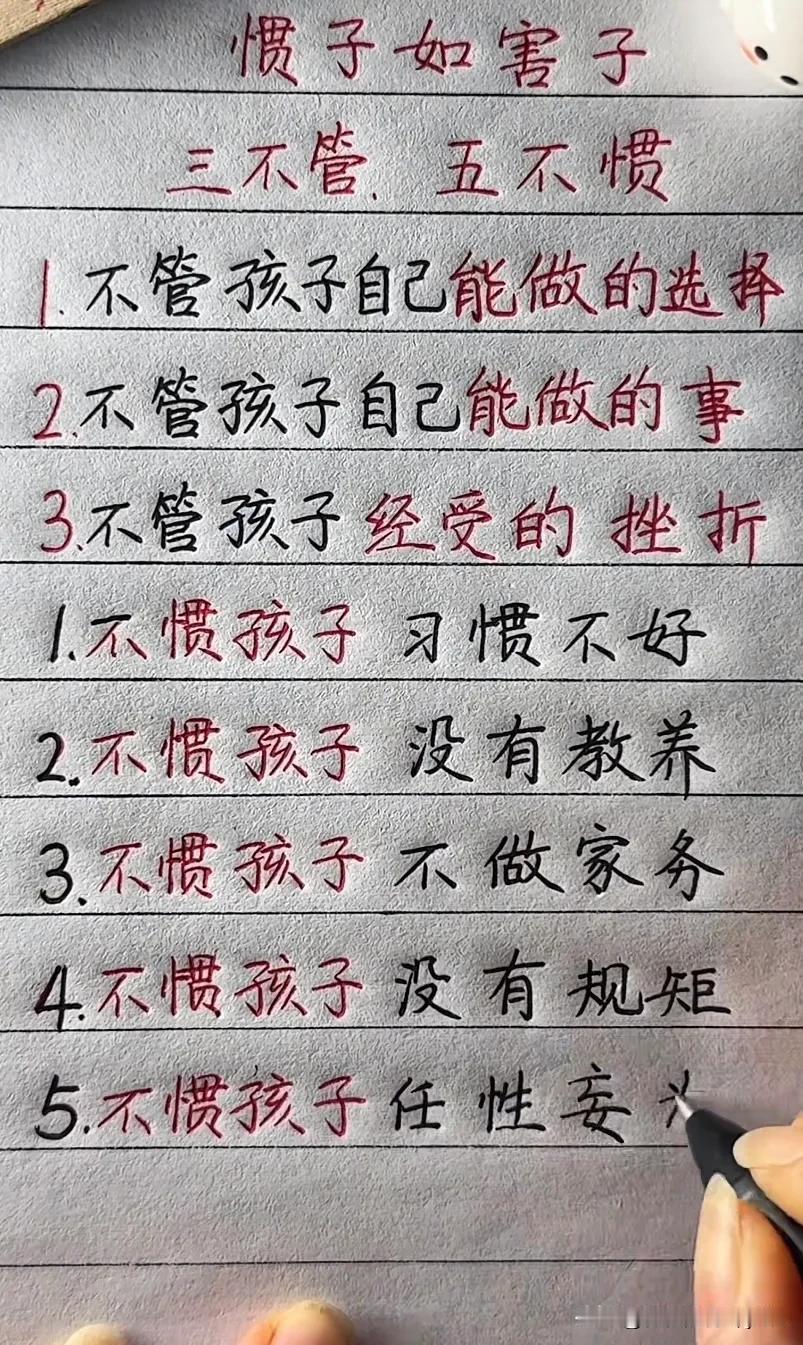 惯子如害子
三不管、五不惯
1.不管孩子自己能做的选择
2.不管孩子自己能做的事
3.不管孩子经受的挫折
1.不惯孩子 习惯不好
2.不惯孩子 没有教养
3.不惯孩子 不做家务
4.不惯孩子 没有规矩
5.不惯孩子 任性妄